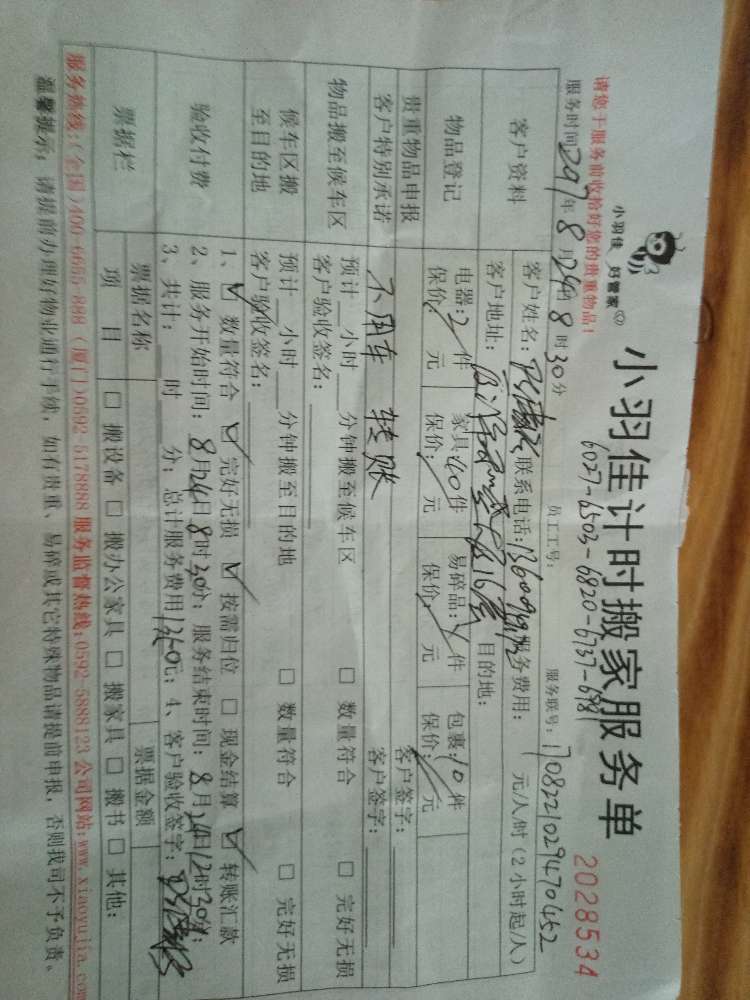 小羽佳 好管家
小羽佳计时搬家服务单
2028534
请您于服务前收拾好您的贵重物品！
6027-6503-6820-6737-6981
员工工号：
服务时间 2017年 8 月 24日 8 时 30分
服务联号：170822102947045 2
客户资料
客户姓名： 联系电话： 服务费用： 元/人/时（2小时起/人）
客户地址： 目的地：
物品登记
电器：2件 家具40件 易碎品： 件 包裹：10件
保价： 元 保价： 元 保价： 元 保价： 元
贵重物品申报
客户签字：
客户特别承诺
不用车 转账
客户签字：
物品搬至候车区
预计 小时 分钟搬至候车区 □ 数量符合 □ 完好无损
客户验收签名：
候车区搬至目的地
预计 小时 分钟搬至目的地 □ 数量符合 □ 完好无损
客户验收签名：
验收付费
1、☑ 数量符合 ☑ 完好无损 ☑ 按需归位 □ 现金结算 ☑ 转账汇款
2、服务开始时间：8月24日8时30分；服务结束时间：8月24日12时30分；
3、共计： 时 分；总计服务费用1360元；4、客户验收签字：
票据栏
票据名称 票据金额
项 目 □ 搬设备 □ 搬办公家具 □ 搬家具 □ 搬书 □ 其他：
服务热线：(全国)400-6655-888 (厦门)0592-5178888 服务监督热线：0592-5888123 公司网站:www.xiaoyujia.com
温馨提示：请提前办理好物业通行手续，如有贵重、易碎或其它特殊物品请提前申报，否则我司不予负责。